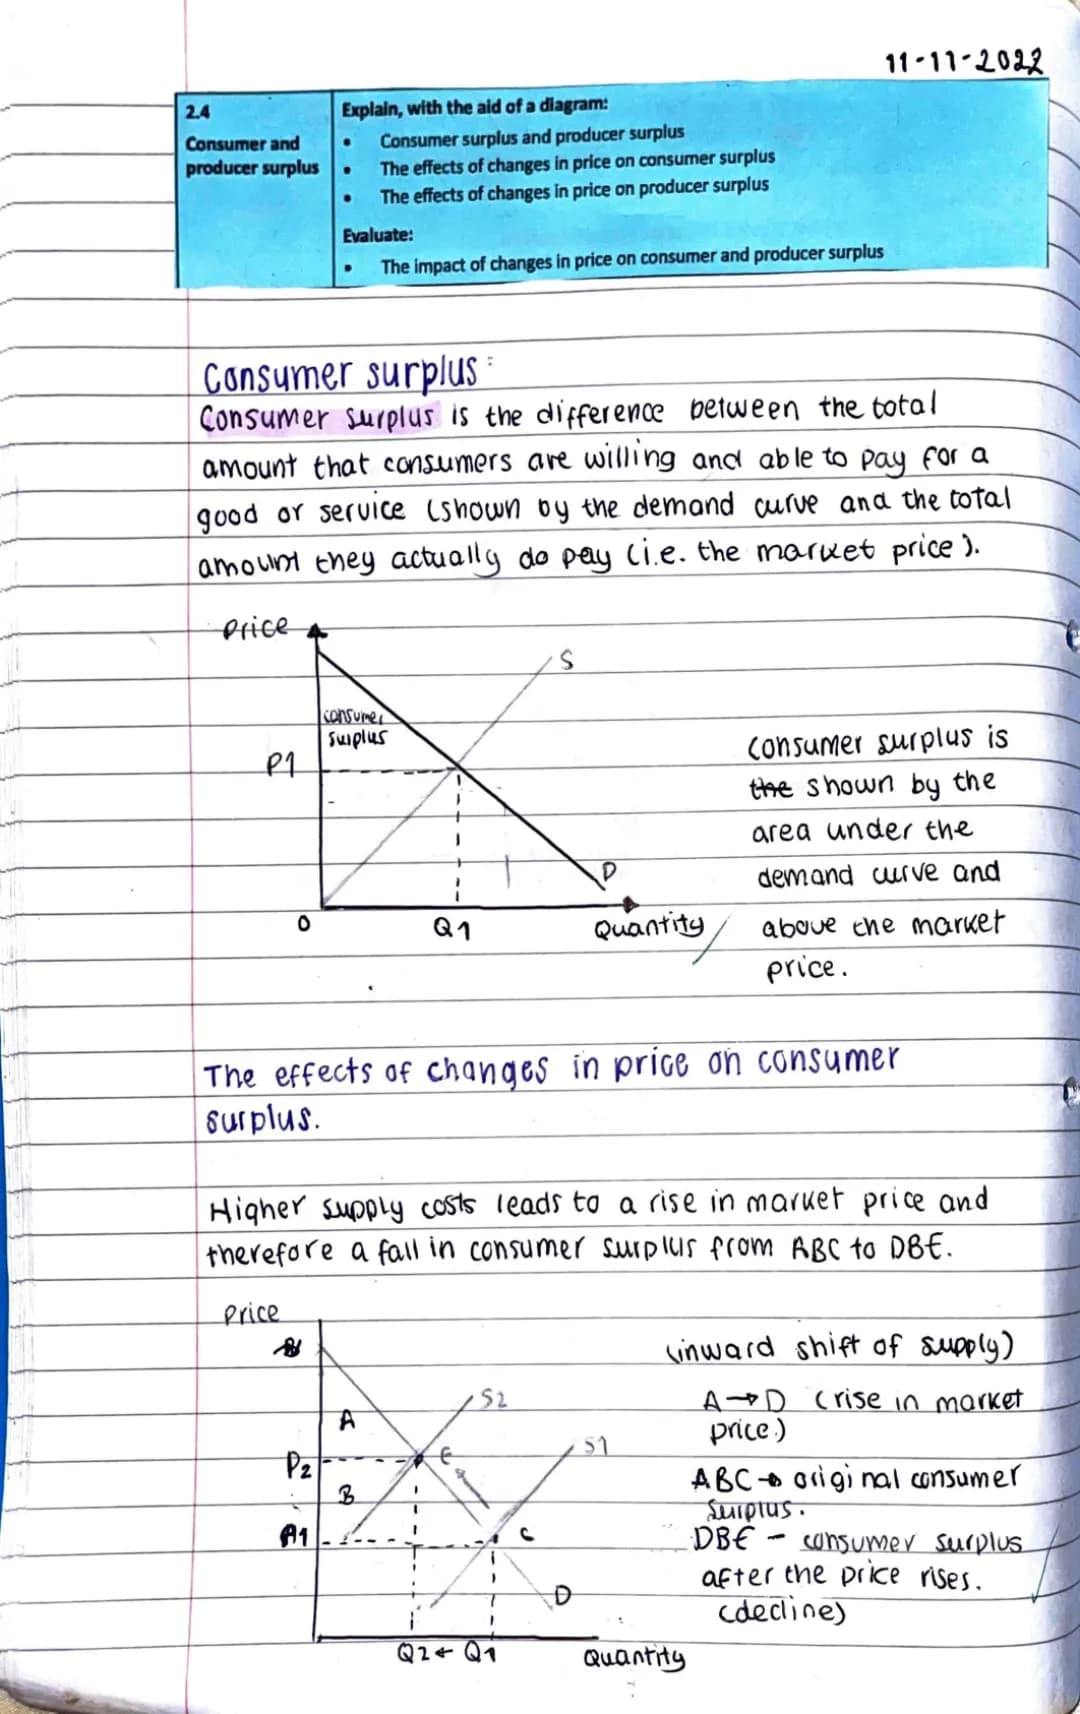 11-11-2022
2.4
Consumer and
producer surplus
Explain, with the aid of a diagram:
• Consumer surplus and producer surplus
• The effects of changes in price on consumer surplus
• The effects of changes in price on producer surplus
Evaluate:
• The impact of changes in price on consumer and producer surplus
Consumer surplus:
Consumer surplus is the difference between the total
amount that consumers are willing and able to pay for a
good or service (shown by the demand curve and the total
amount they actually do pay (i.e. the market price).
Price
S
consumer
surplus
P1
D
0
Q1
Quantity
consumer surplus is
the shown by the
area under the
demand curve and
above the market
price.
The effects of changes in price on consumer
surplus.
Higher supply costs leads to a rise in market price and
therefore a fall in consumer surplus from ABC to DBE.
Price
(inward shift of supply)
S2
A→D (rise in market
price)
A
S1
P2
E
ABC→ original consumer
surplus.
B
A1
C
DBE - consumer surplus
after the price rises.
(decline)
D
Q2← Q1
Quantity